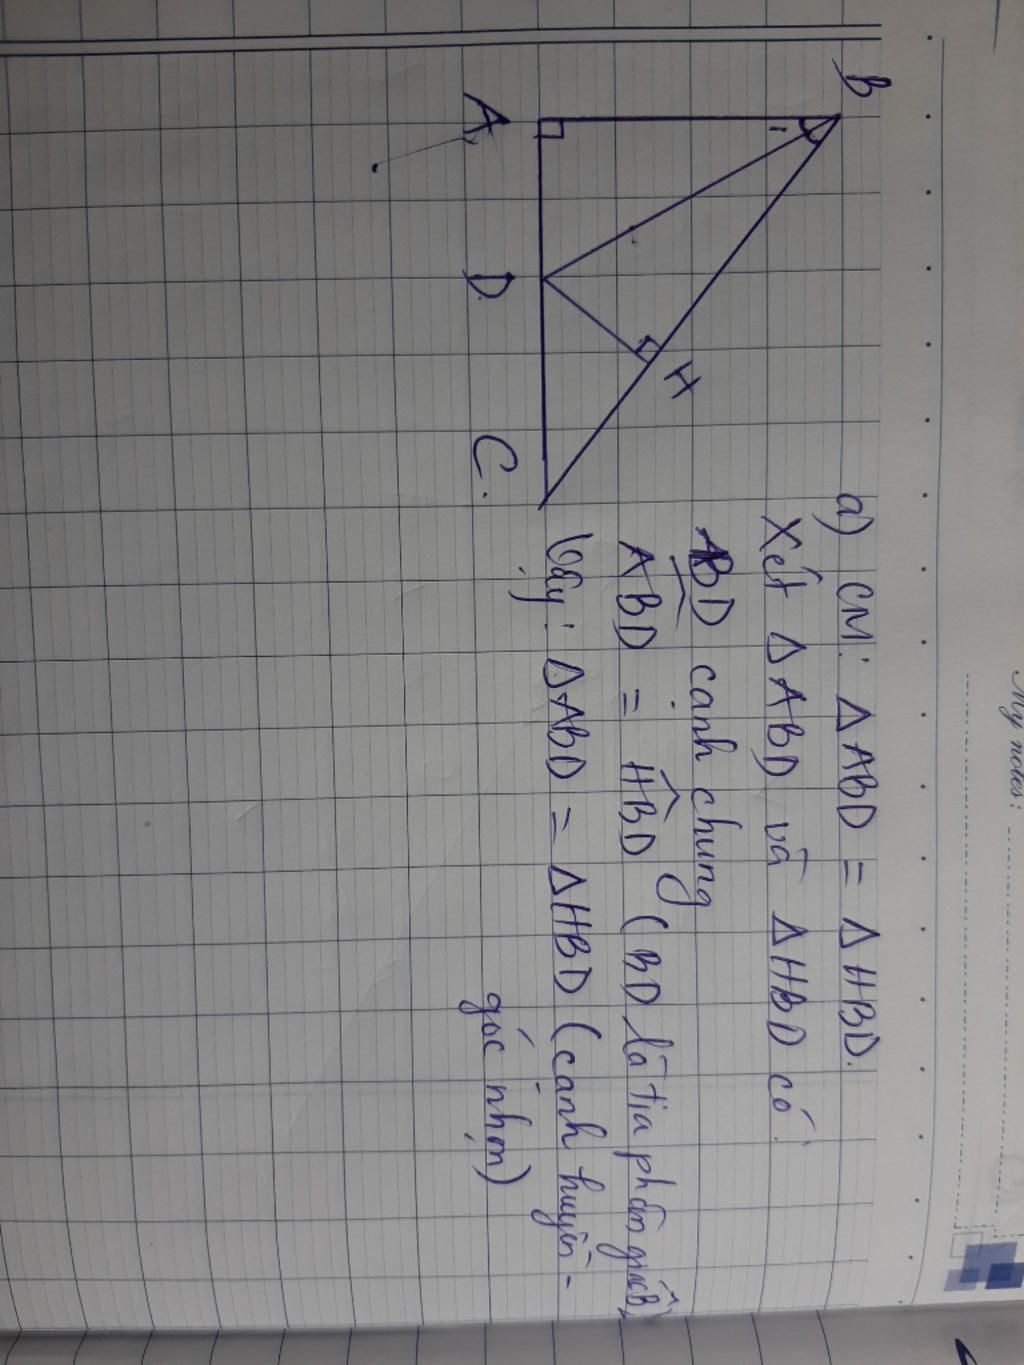 My notes:
B
A
D
H
C.
a) CM: ΔABD = ΔHBD.
Xét ΔABD và ΔHBD có:
BD cạnh chung
ABD̂ = HBD̂ (BD là tia phân giác B̂)
Vậy: ΔABD = ΔHBD (cạnh huyền -
góc nhọn)